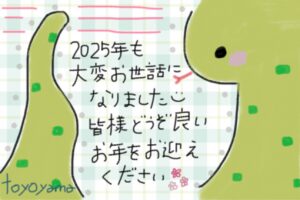 2025年も
大変お世話に
なりました
皆様どうぞ良い
お年をお迎え
ください
toyoyama